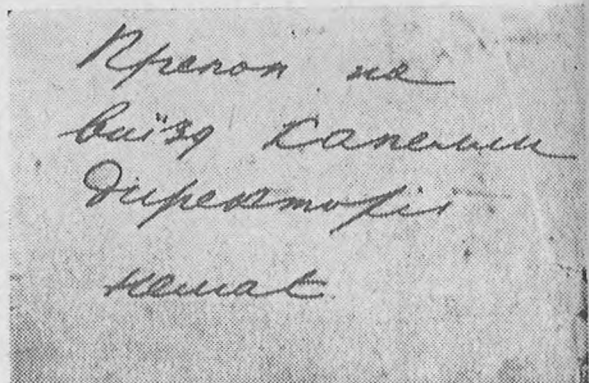 Препон на
виїзд капелии
Директорії
немає